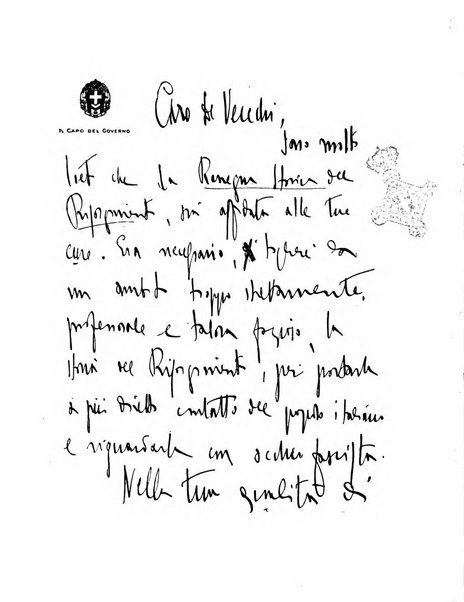 IL CAPO DEL GOVERNO
Caro De Vecchi,
sono molto
lieto che la Rassegna Storica del
Risorgimento, sia affidata alle tue
cure. Era necessario, togliere da
un ambito troppo strettamente,
professorale e talora fazioso, la
storia del Risorgimento, per portarla
a più diretto contatto del popolo italiano
e riguardarla con occhio fascista.
Nella tua qualità di